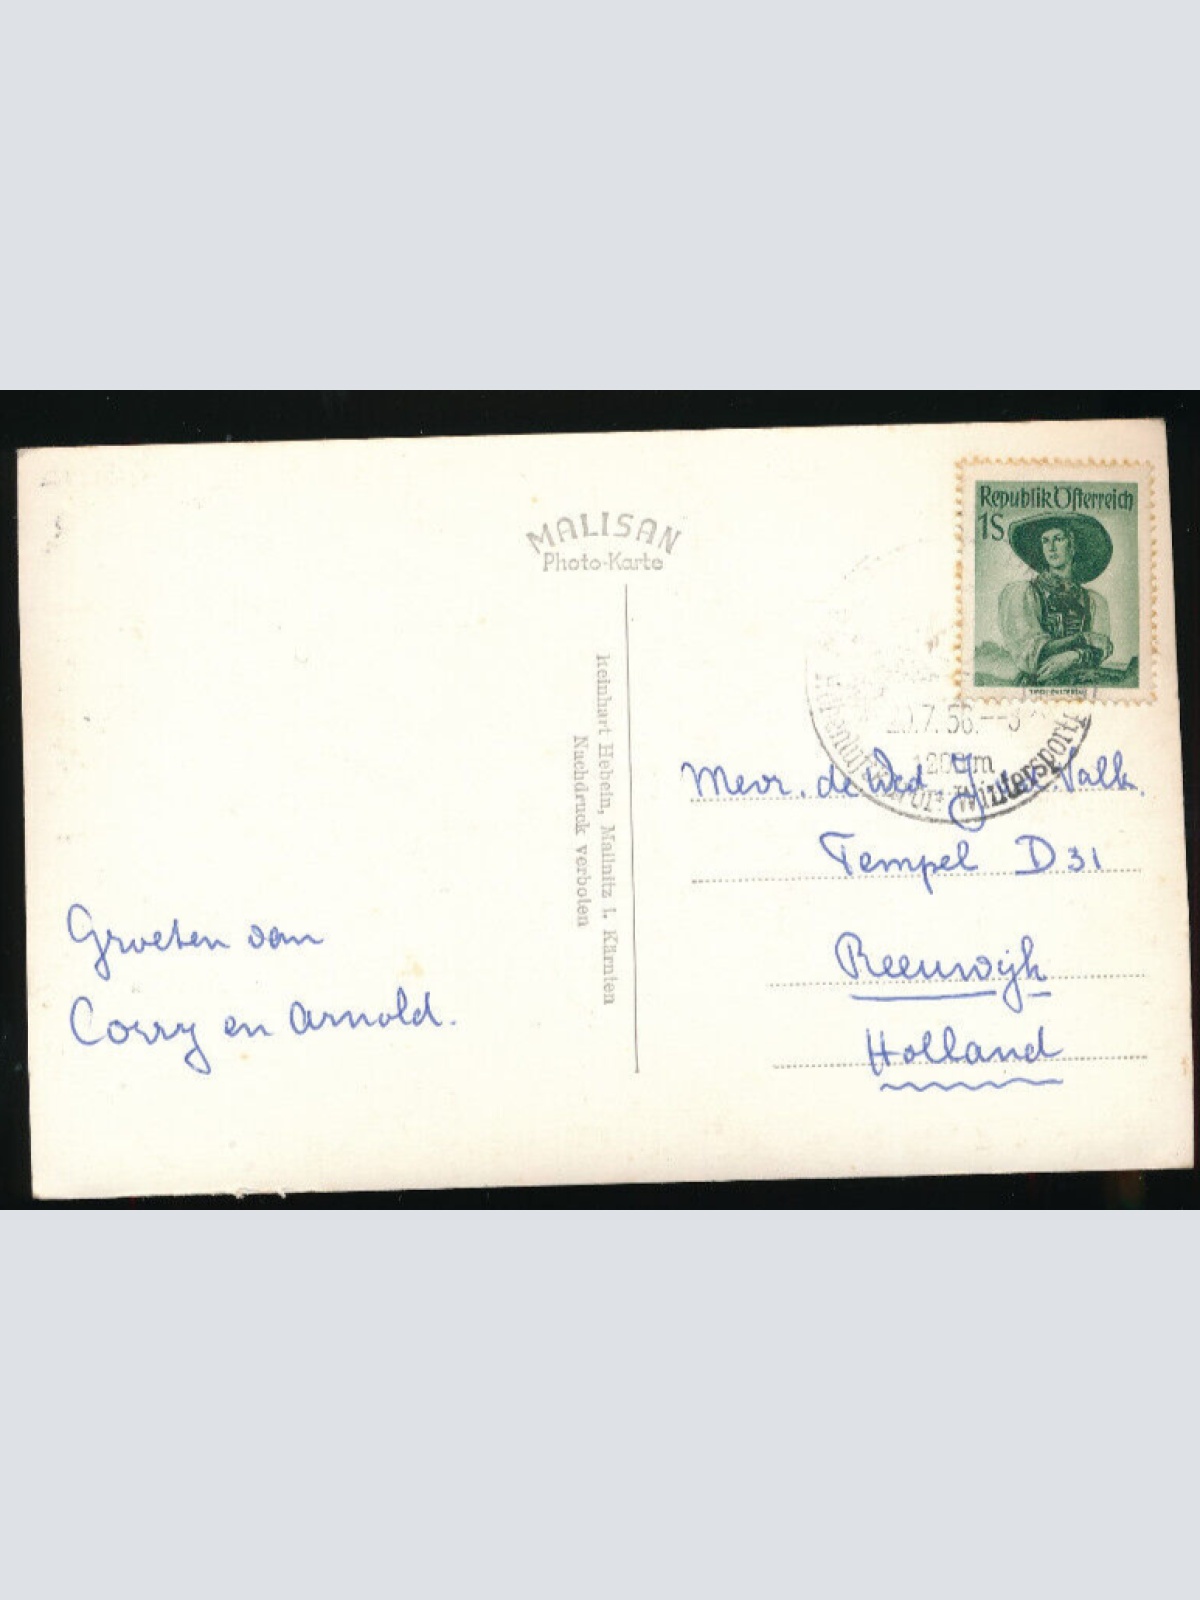 MALISAN
Photo-Karte
Republik Österreich
1S
.7.56.--
m
Wintersport
Reinhart Hebein, Mallnitz i. Kärnten
Nachdruck verboten
Groeten van
Corry en Arnold.
Mevr. de Wed Valk.
Tempel D31
Reeuwijk
Holland